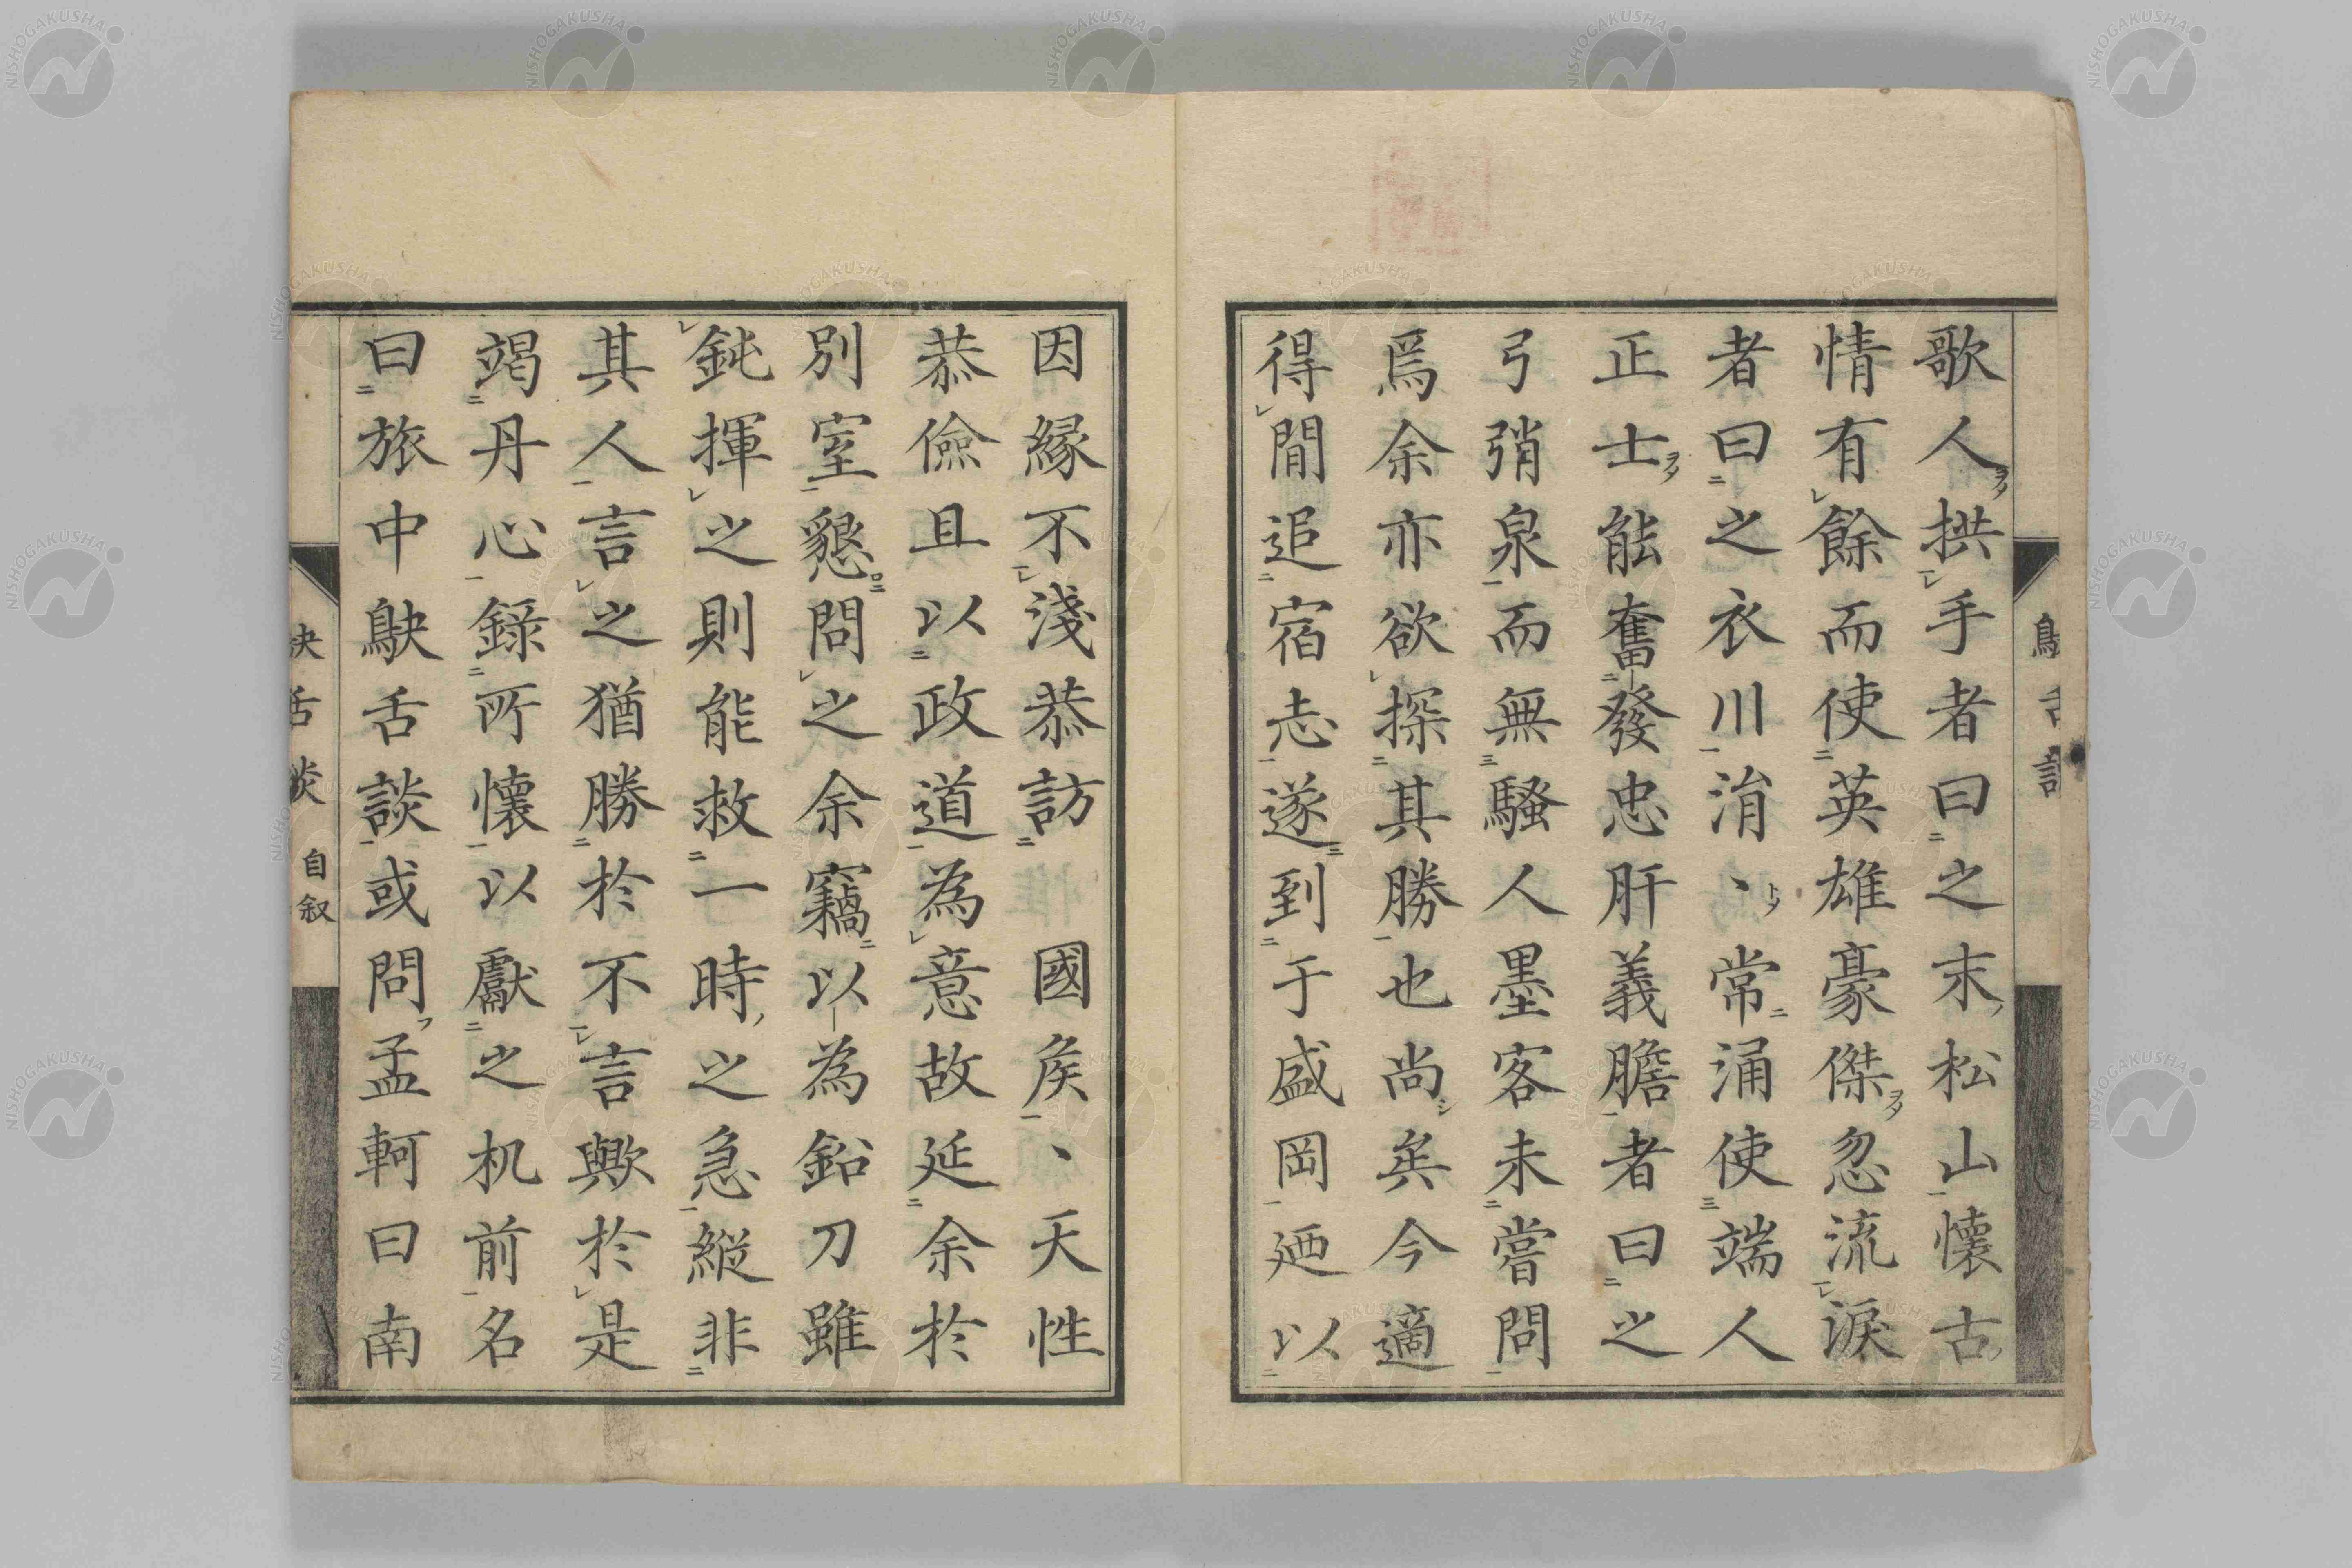 歌人拱手者曰之末松山懷古
情有餘而使英雄豪傑忽流淚
者曰之衣川涓丶常涌使端人
正士能奮發忠肝義膽者曰之
弓弰泉而無騷人墨客未嘗問
焉余亦欲探其勝也尚矣今適
得閒追宿志遂到于盛岡廼以
因緣不淺恭訪國矦丶天性
恭儉且以政道為意故延余於
別室懇問之余竊以為鉛刀雖
鈍揮之則能救一時之急縱非
其人言之猶勝於不言歟於是
竭丹心錄所懷以獻之机前名
曰旅中鴃舌談或問孟軻曰南
舌談 自叙
NISHOGAKUSHA